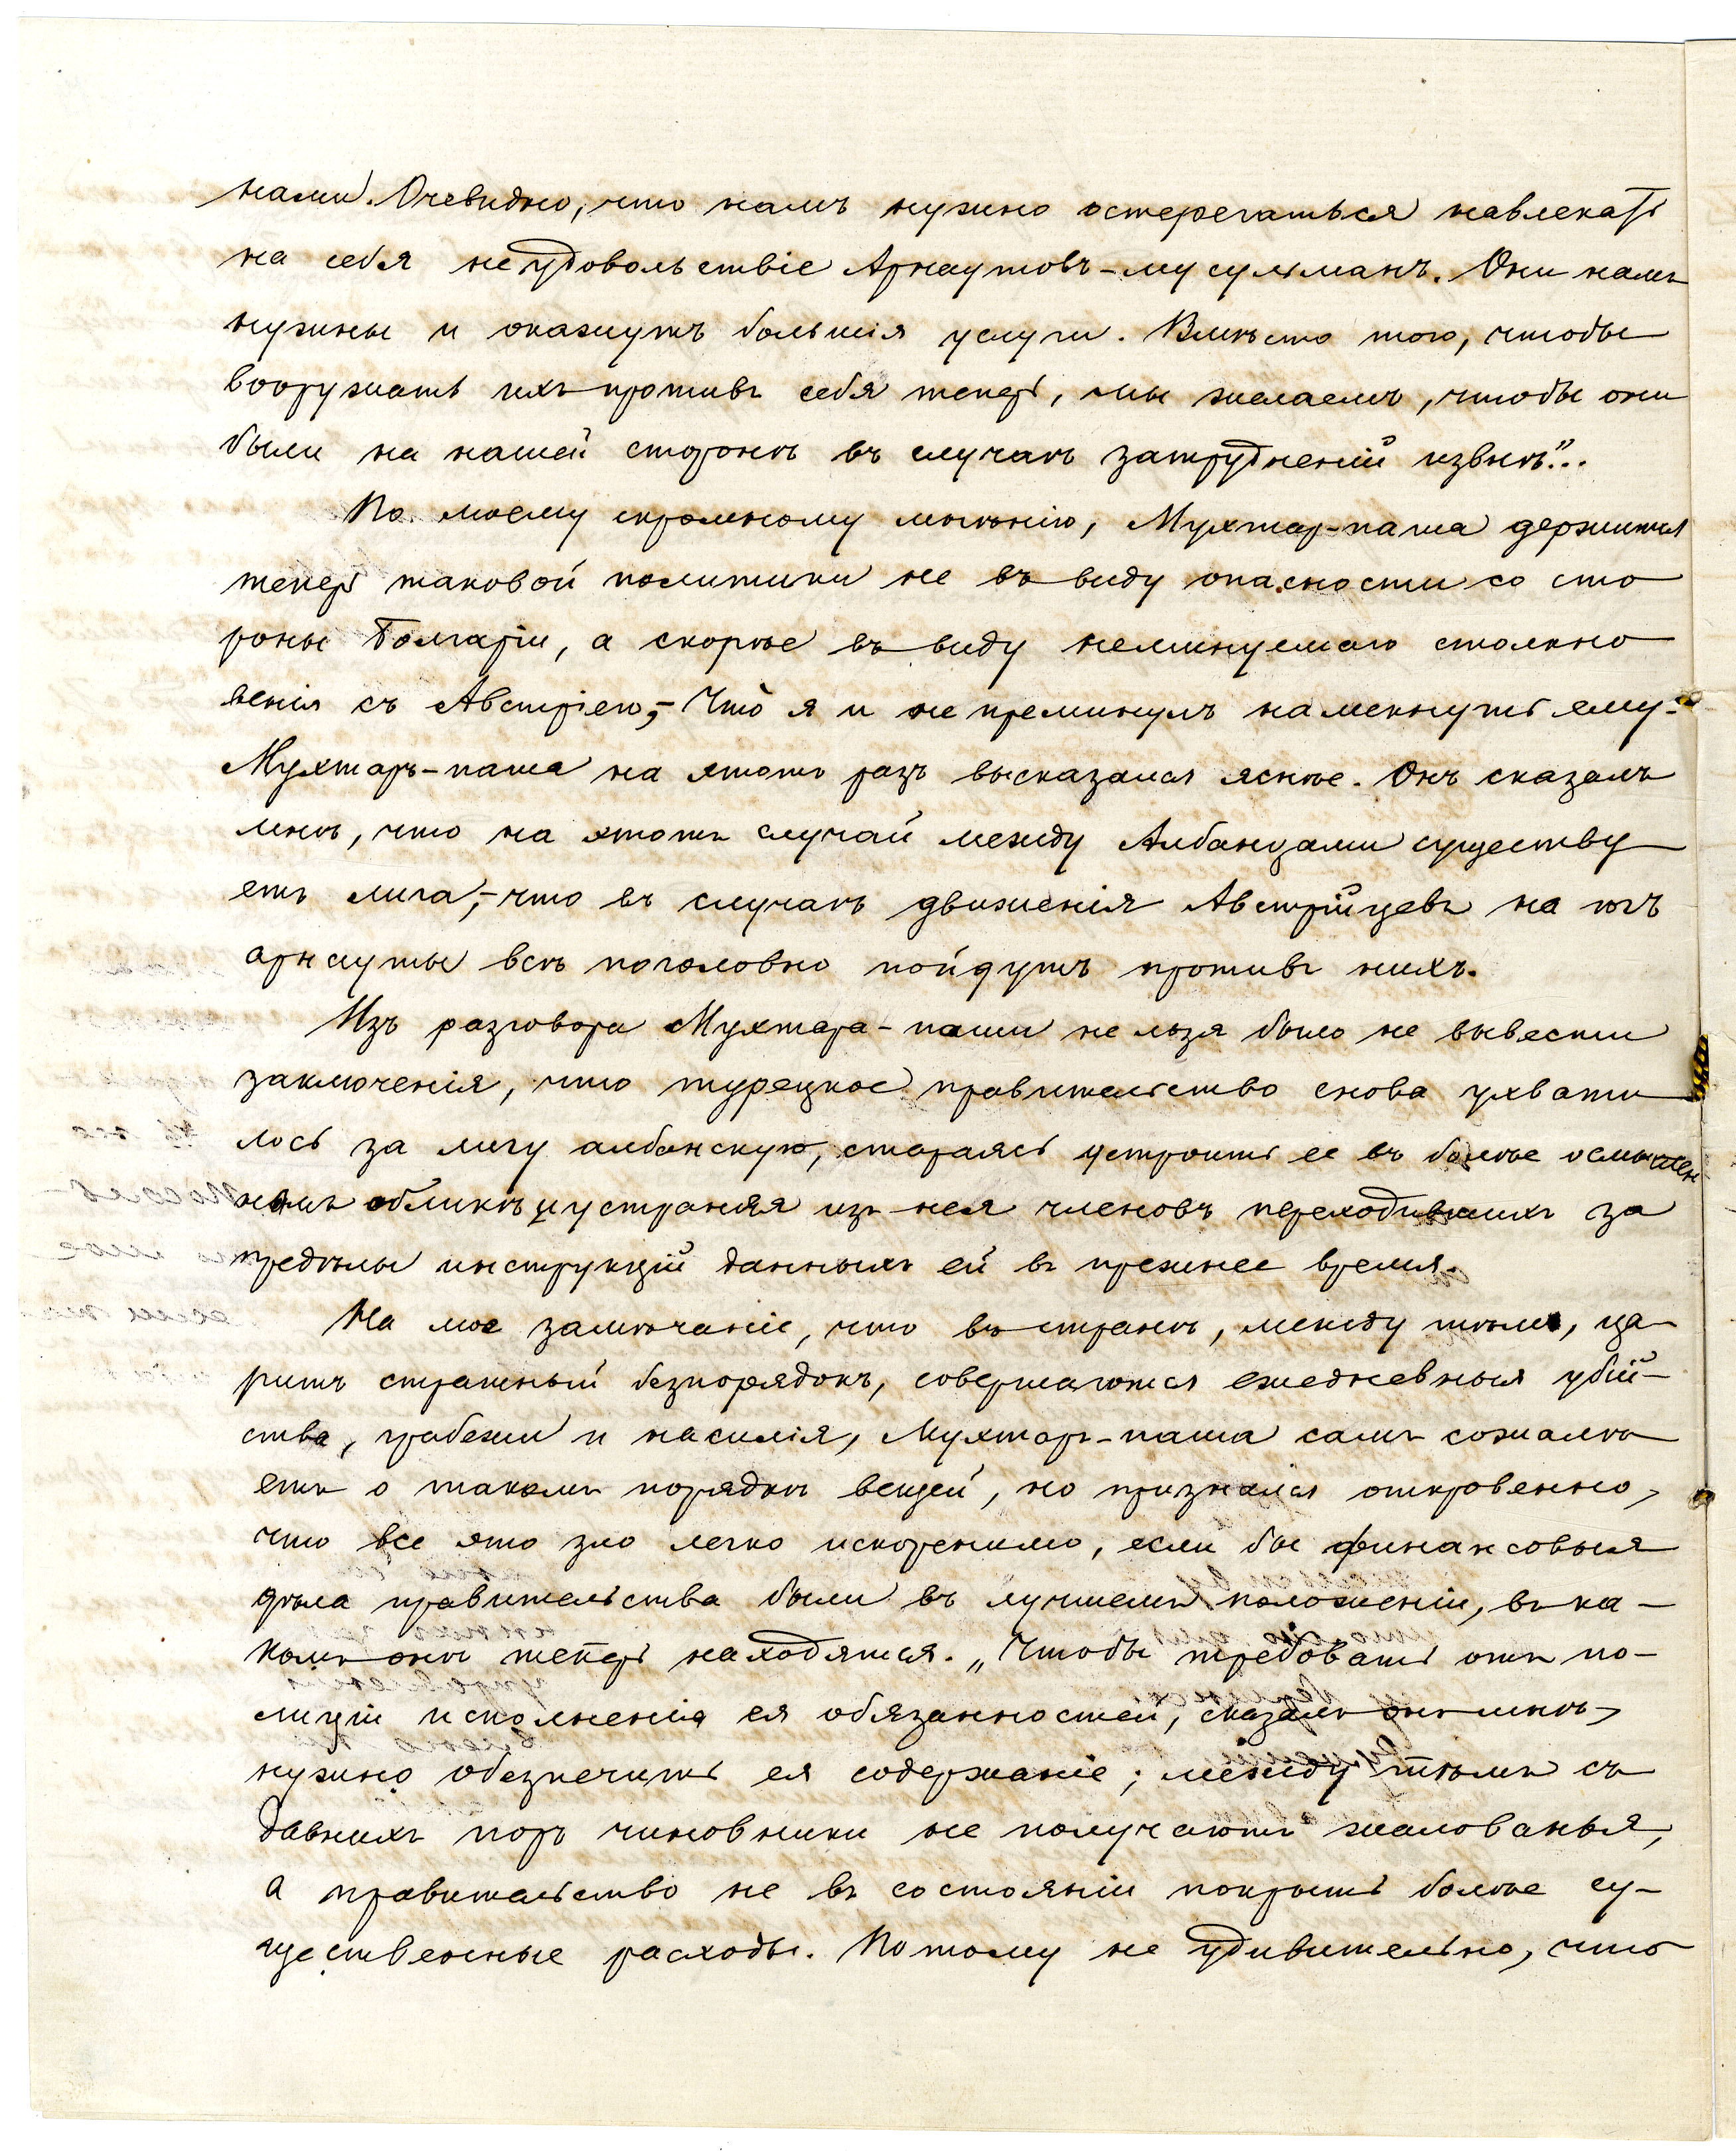 нами. Очевидно, что намъ нужно остерегаться навлекать
на себя неудовольствіе Арнаутовъ-мусульманъ. Они намъ
нужны и окажутъ большія услуги. Вмѣсто того, чтобы
вооружать ихъ противъ себя теперь, мы желаемъ, чтобы они
были на нашей сторонѣ въ случаѣ затрудненій извнѣ"...
По моему скромному мнѣнію, Мухтар-паша держится
теперь таковой политики не въ виду опасности со сто
роны Болгаріи, а скорѣе въ виду неминуемаго столкно
венія съ Австріею,- Что я и не преминулъ намекнуть ему.
Мухтаръ-паша на этотъ разъ высказался яснѣе. Онъ сказалъ
мнѣ, что на этотъ случай между Албанцами существу
етъ лига,- что въ случаѣ движенія Австрійцевъ на югъ
арнауты всѣ поголовно пойдутъ противъ нихъ.
Изъ разговора Мухтара-паши нельзя было не вывести
заключенія, что турецкое правительство снова ухвати
лось за лигу албанскую, стараясь устроить ее въ болѣе осмыслен
номъ обликѣ и устраняя изъ нея членовъ переходившихъ за
предѣлы инструкцій данныхъ ей въ прежнее время.
На мое замѣчаніе, что въ странѣ, между тѣмъ, ца-
ритъ страшный безпорядокъ, совершаются ежедневныя убій-
ства, грабежи и насилія, Мухтаръ-паша самъ сожалѣ
етъ о такомъ порядкѣ вещей, но признался откровенно,
что все это зло легко искоренимо, если бы финансовыя
дѣла правительства были въ лучшемъ положеніи, въ ка-
комъ онѣ теперь находятся. „Чтобы требовать отъ по-
лиціи исполненія ея обязанностей, сказалъ онъ мнѣ,
нужно обезпечить ея содержаніе; между тѣмъ съ
давнихъ поръ чиновники не получаютъ жалованья,
а правительство не въ состояніи покрыть болѣе су-
щественные расходы. Потому не удивительно, что